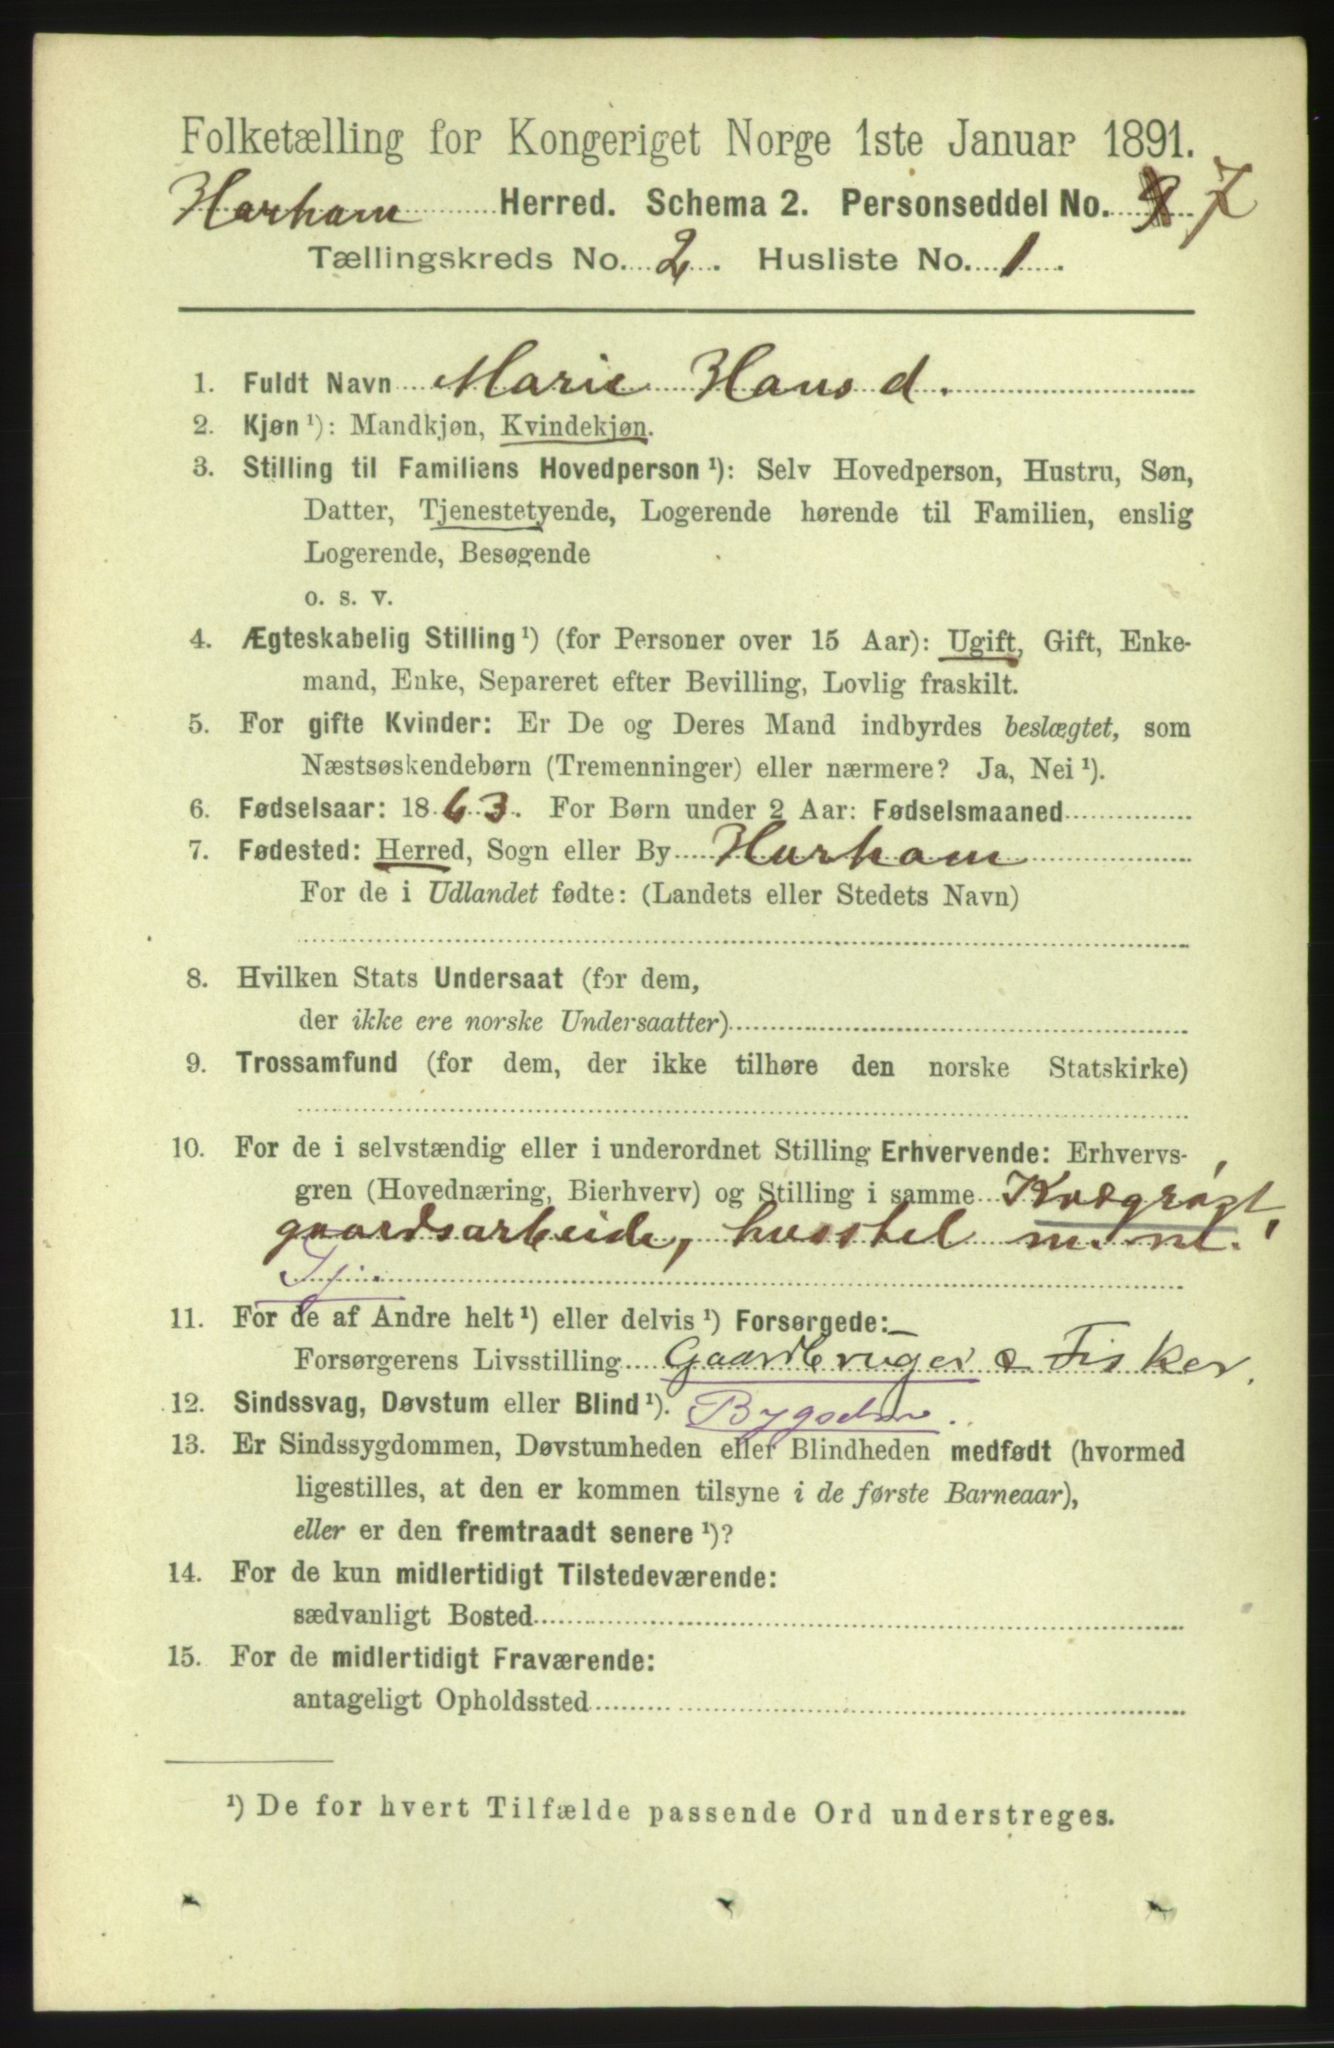 Folketælling for Kongeriget Norge 1ste Januar 1891.
Harham Herred. Schema 2. Personseddel No. 7
Tællingskreds No. 2. Husliste No. 1.
1. Fuldt Navn Marie Hans d.
2. Kjøn ¹): Mandkjøn, Kvindekjøn.
3. Stilling til Familiens Hovedperson ¹): Selv Hovedperson, Hustru, Søn,
Datter, Tjenestetyende, Logerende hørende til Familien, enslig
Logerende, Besøgende
o. s. v.
4. Ægteskabelig Stilling ¹) (for Personer over 15 Aar): Ugift, Gift, Enke-
mand, Enke, Separeret efter Bevilling, Lovlig fraskilt.
5. For gifte Kvinder: Er De og Deres Mand indbyrdes beslægtet, som
Næstsøskendebørn (Tremenninger) eller nærmere? Ja, Nei ¹).
6. Fødselsaar: 1863. For Børn under 2 Aar: Fødselsmaaned
7. Fødested: Herred, Sogn eller By Harham
For de i Udlandet fødte: (Landets eller Stedets Navn)
8. Hvilken Stats Undersaat (for dem,
der ikke ere norske Undersaatter)
9. Trossamfund (for dem, der ikke tilhøre den norske Statskirke)
10. For de i selvstændig eller i underordnet Stilling Erhvervende: Erhvervs-
gren (Hovednæring, Bierhverv) og Stilling i samme Kvægrøgt,
gaardsarbeide, husstel m. m.
Tj.
11. For de af Andre helt ¹) eller delvis ¹) Forsørgede:
Forsørgerens Livsstilling Gaardbruger & Fisker.
12. Sindssvag, Døvstum eller Blind ¹).
13. Er Sindssygdommen, Døvstumheden eller Blindheden medfødt (hvormed
ligestilles, at den er kommen tilsyne i de første Barneaar),
eller er den fremtraadt senere ¹)?
14. For de kun midlertidigt Tilstedeværende:
sædvanligt Bosted
15. For de midlertidigt Fraværende:
antageligt Opholdssted
¹) De for hvert Tilfælde passende Ord understreges.